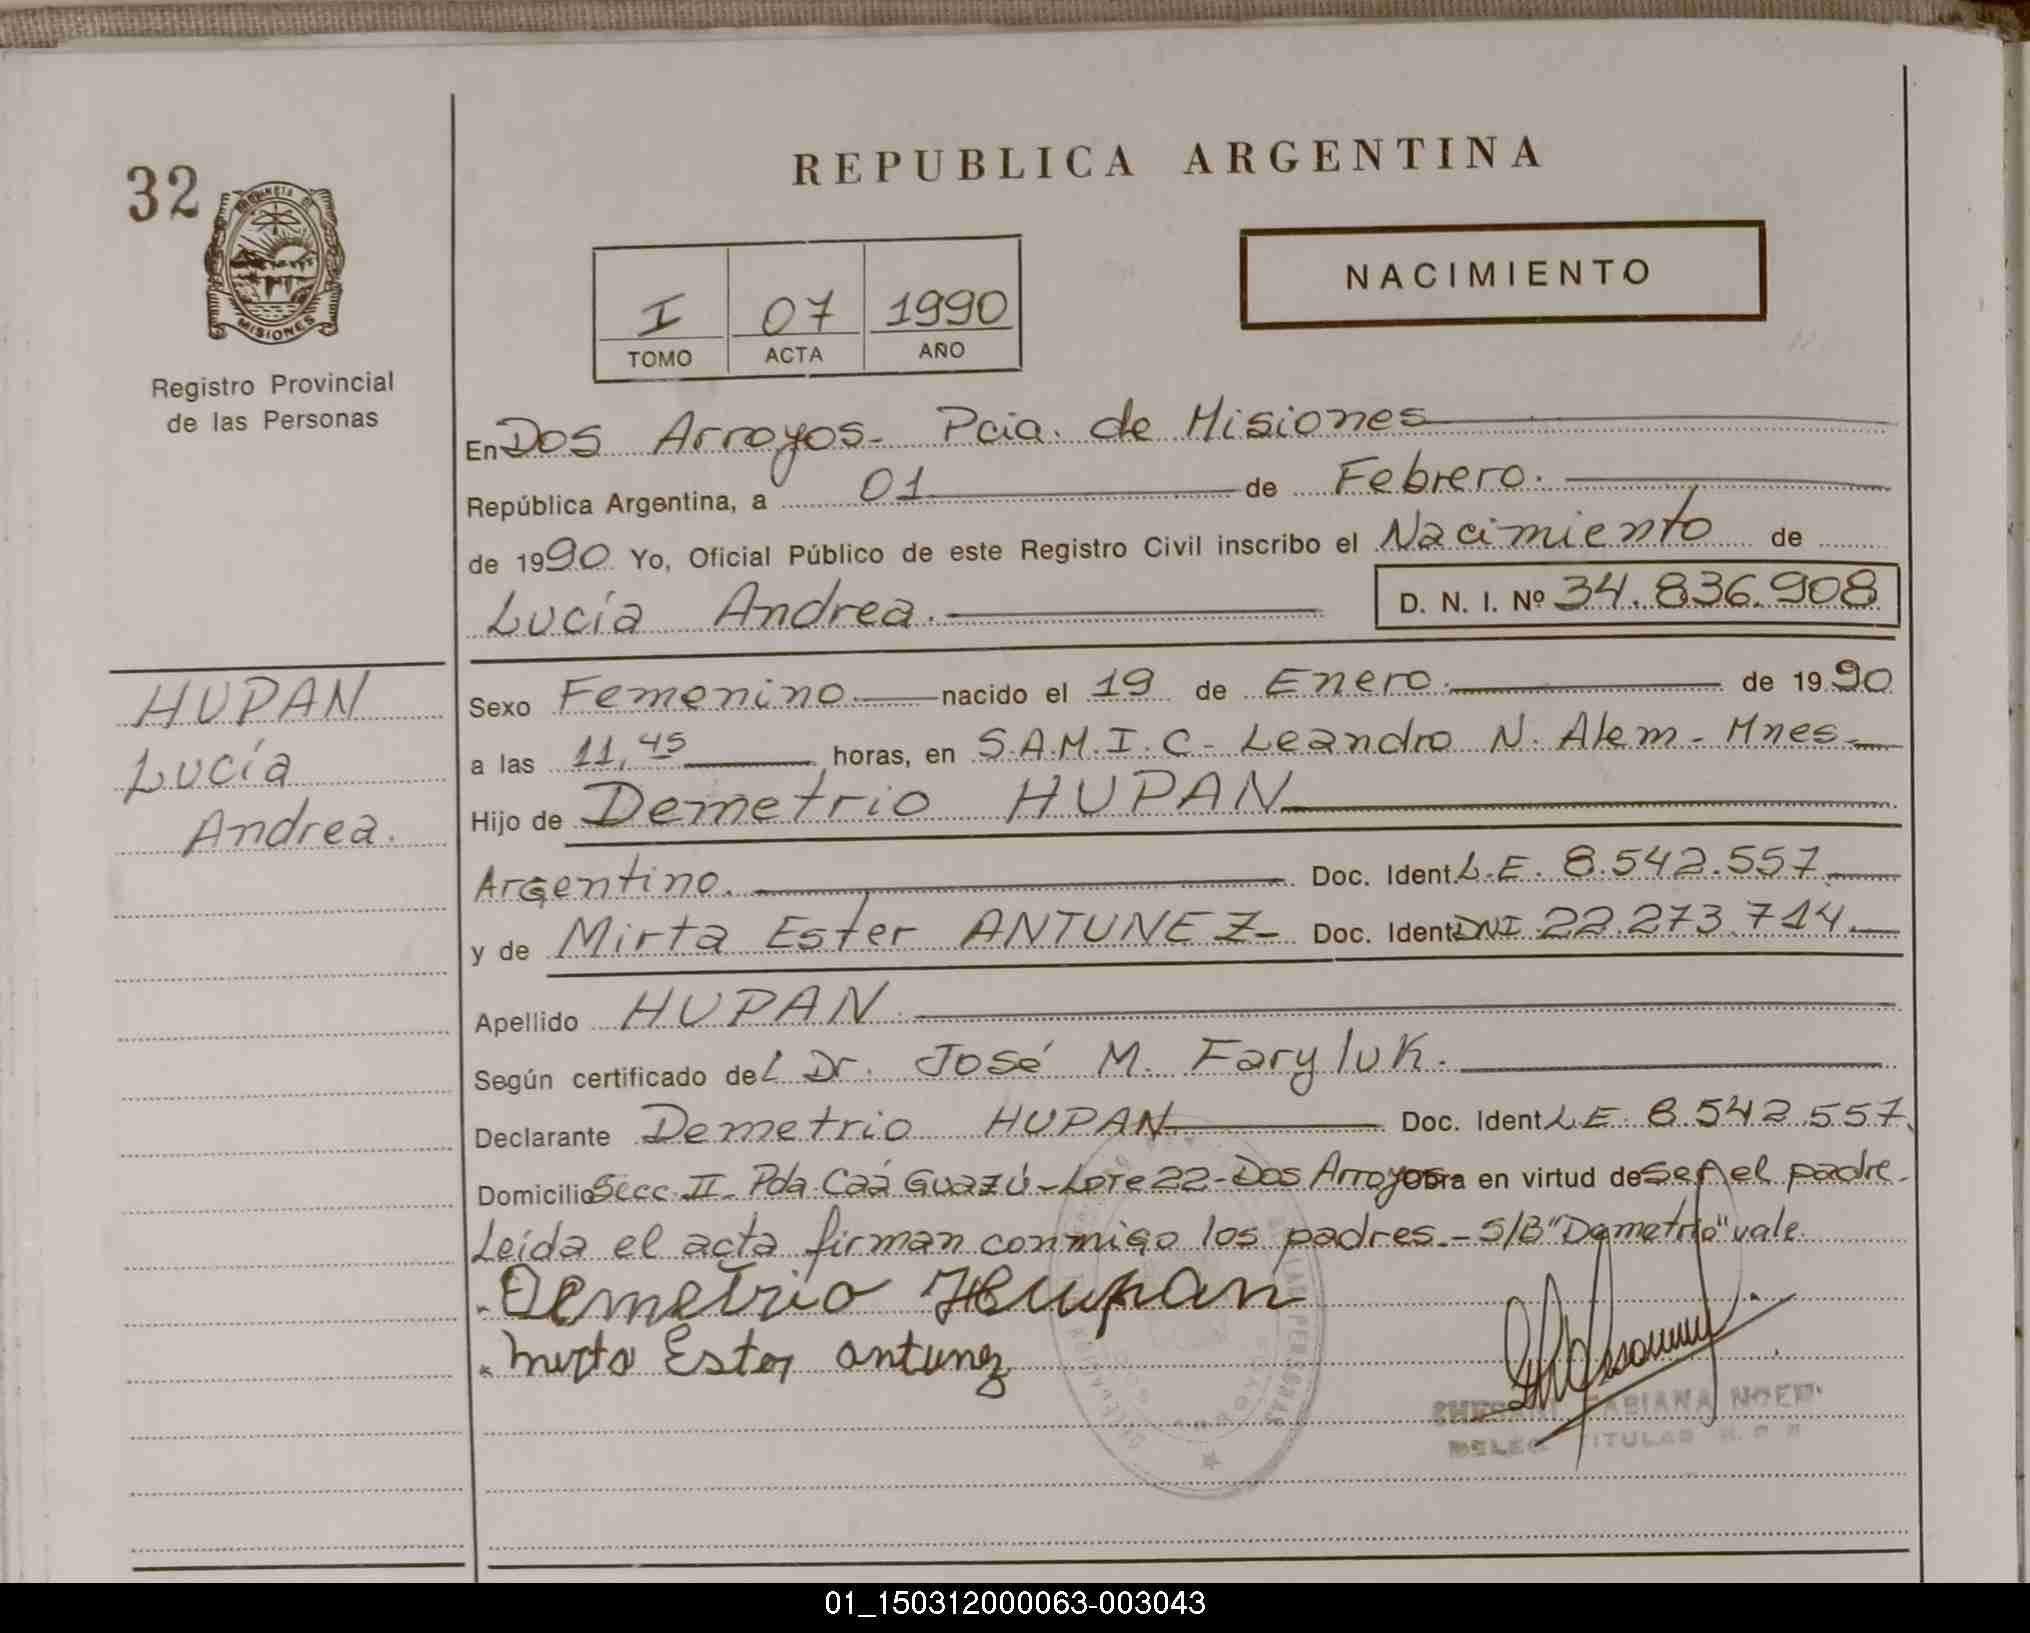 REPUBLICA ARGENTINA
32
PROVINCIA DE
MISIONES
Registro Provincial
de las Personas
NACIMIENTO
I 07 1990
TOMO ACTA AÑO
En Dos Arroyos- Pcia. de Misiones
República Argentina, a 01 de Febrero.
de 1990 Yo, Oficial Público de este Registro Civil inscribo el Nacimiento de
Lucía Andrea. D. N. I. Nº 34.836.908
HUPAN
Lucía
Andrea.
Sexo Femenino. nacido el 19 de Enero. de 1990
a las 11,45 horas, en S.A.M.I.C- Leandro N. Alem- Mnes-
Hijo de Demetrio HUPAN
Argentino. Doc. Ident. L.E. 8.542.557
y de Mirta Ester ANTUNEZ- Doc. Ident. DNI 22.273.714
Apellido HUPAN
Según certificado del Dr. José M. Faryluk.
Declarante Demetrio HUPAN Doc. Ident L.E. 8.542.557
Domicilio Secc. II- Pda. Caá Guazú-Lote 22-Dos Arroyos Obra en virtud de ser el padre.
Leída el acta firman conmigo los padres.- S/B "Demetrio" vale.
Demetrio Hupan
Mirta Ester antunez
FABIANA NOEMI
DELEG. TITULAR R. P. P.
01_150312000063-003043